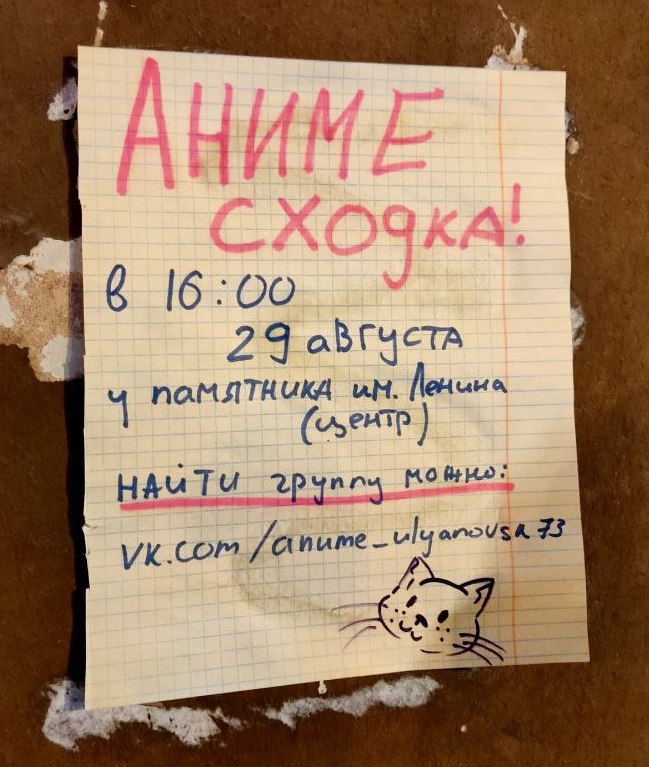 АНИМЕ
сходка!
в 16:00
29 августа
у памятника им. Ленина
(центр)
Найти группу можно:
vk.com/anime_ulyanovsk73